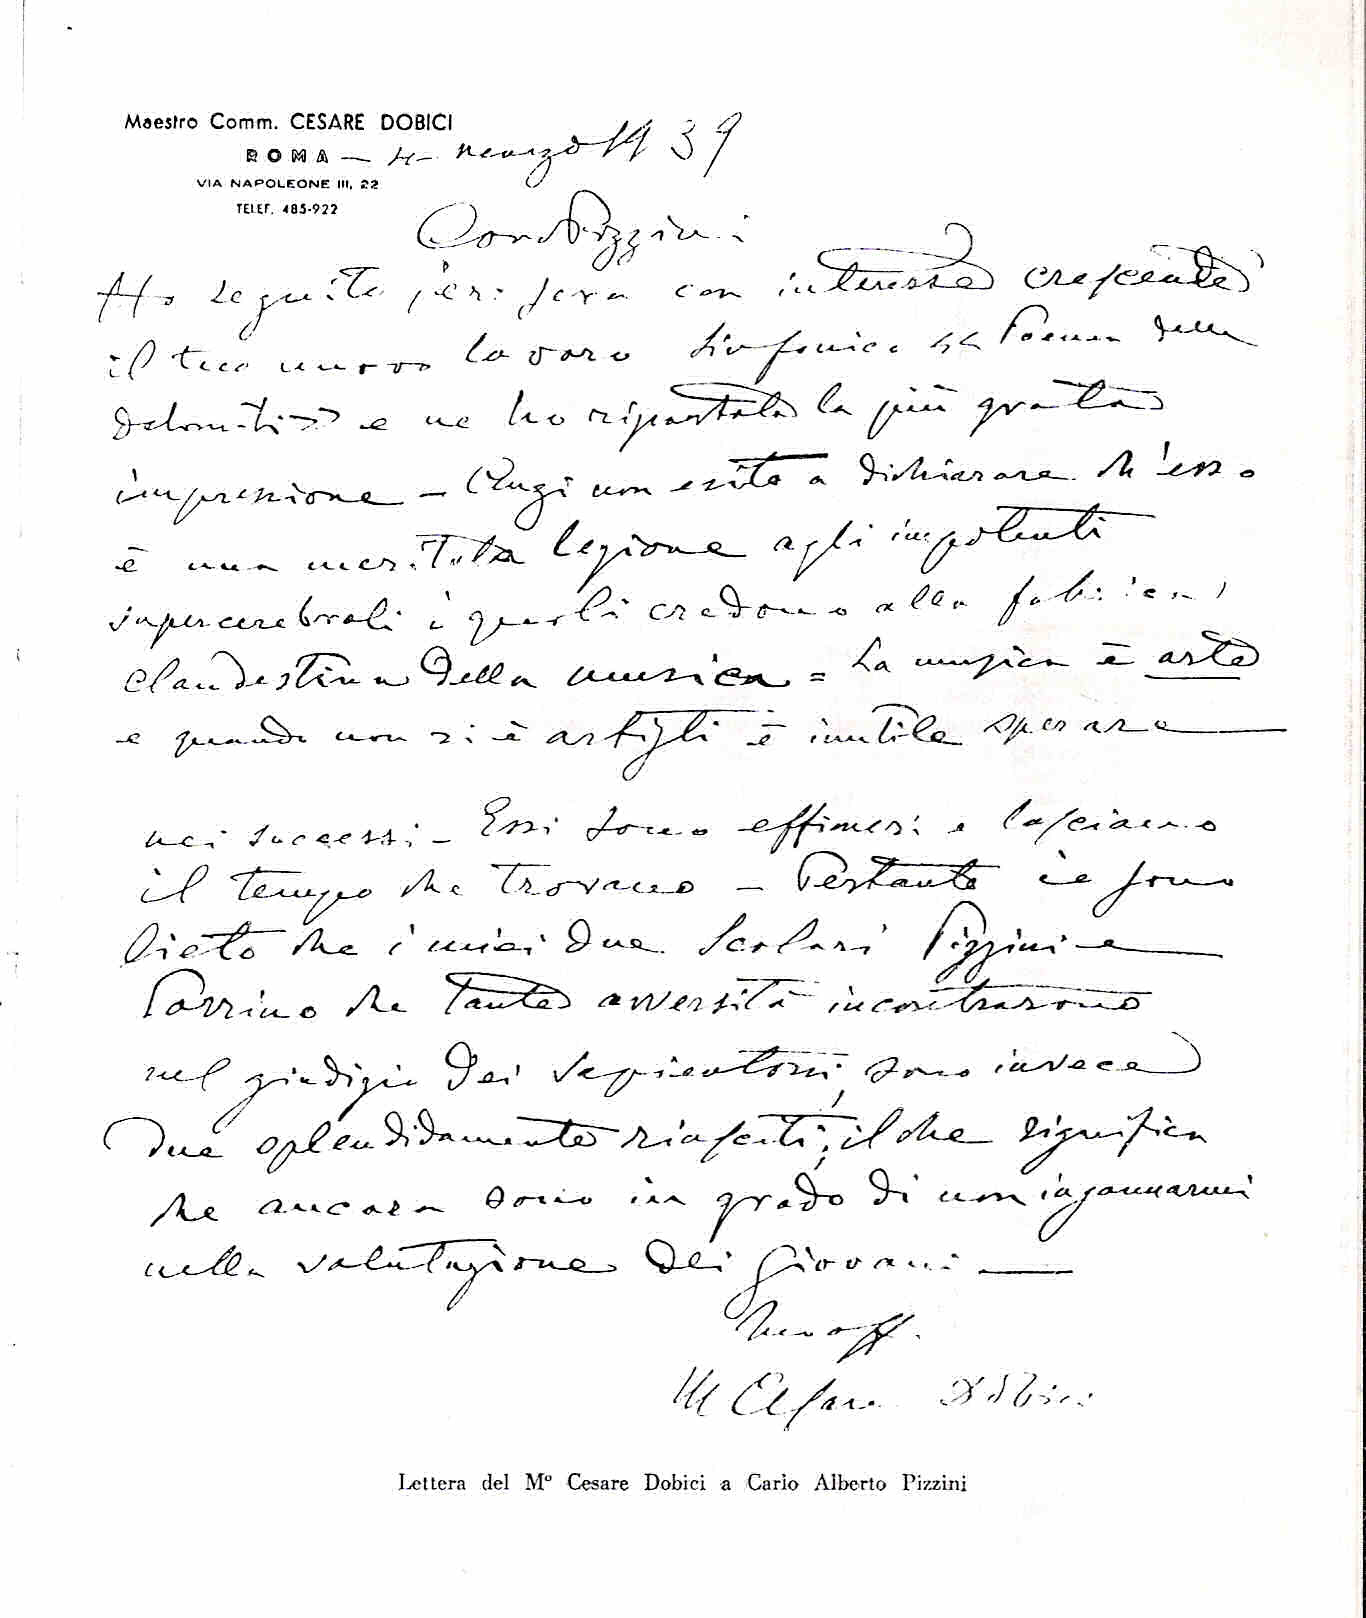 Maestro Comm. CESARE DOBICI
ROMA — 4 - marzo 1939
VIA NAPOLEONE III, 22
TELEF. 485-922
Caro Pizzini
Ho seguito ieri sera con interesse crescente
il tuo nuovo lavoro sinfonico "Poema delle
dolomiti" e ne ho riportato la più grata
impressione — Anzi non esito a dichiarare ch'esso
è una meritata lezione agli impotenti
supercerebrali i quali credono alla
clandestina della musica = La musica è arte
e quando non si è artisti è inutile sperare
nei successi — Essi sono effimeri e lasciano
il tempo che trovano — Pertanto io sono
lieto che i miei due scolari Pizzini e
Porrino che tante avversità incontrarono
nel giudizio dei sapientoni, sono invece
due splendidamente riusciti, il che significa
che ancora sono in grado di non ingannarmi
nella valutazione dei giovani —
Tuo aff.
M Cesare Dobici
Lettera del Mº Cesare Dobici a Carlo Alberto Pizzini